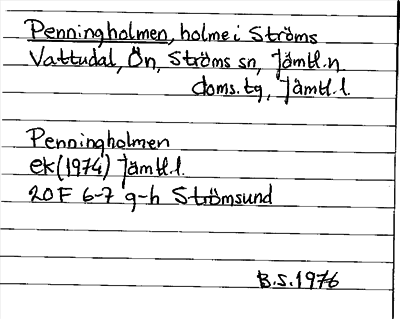 Penningholmen, holme i Ströms
Vattudal, Ön, Ströms sn, Jämtl.n
doms.tg, Jämtl.l.
Penningholmen
ek(1974) Jämtl.l.
20F 6-7 g-h Strömsund
B.S.1976